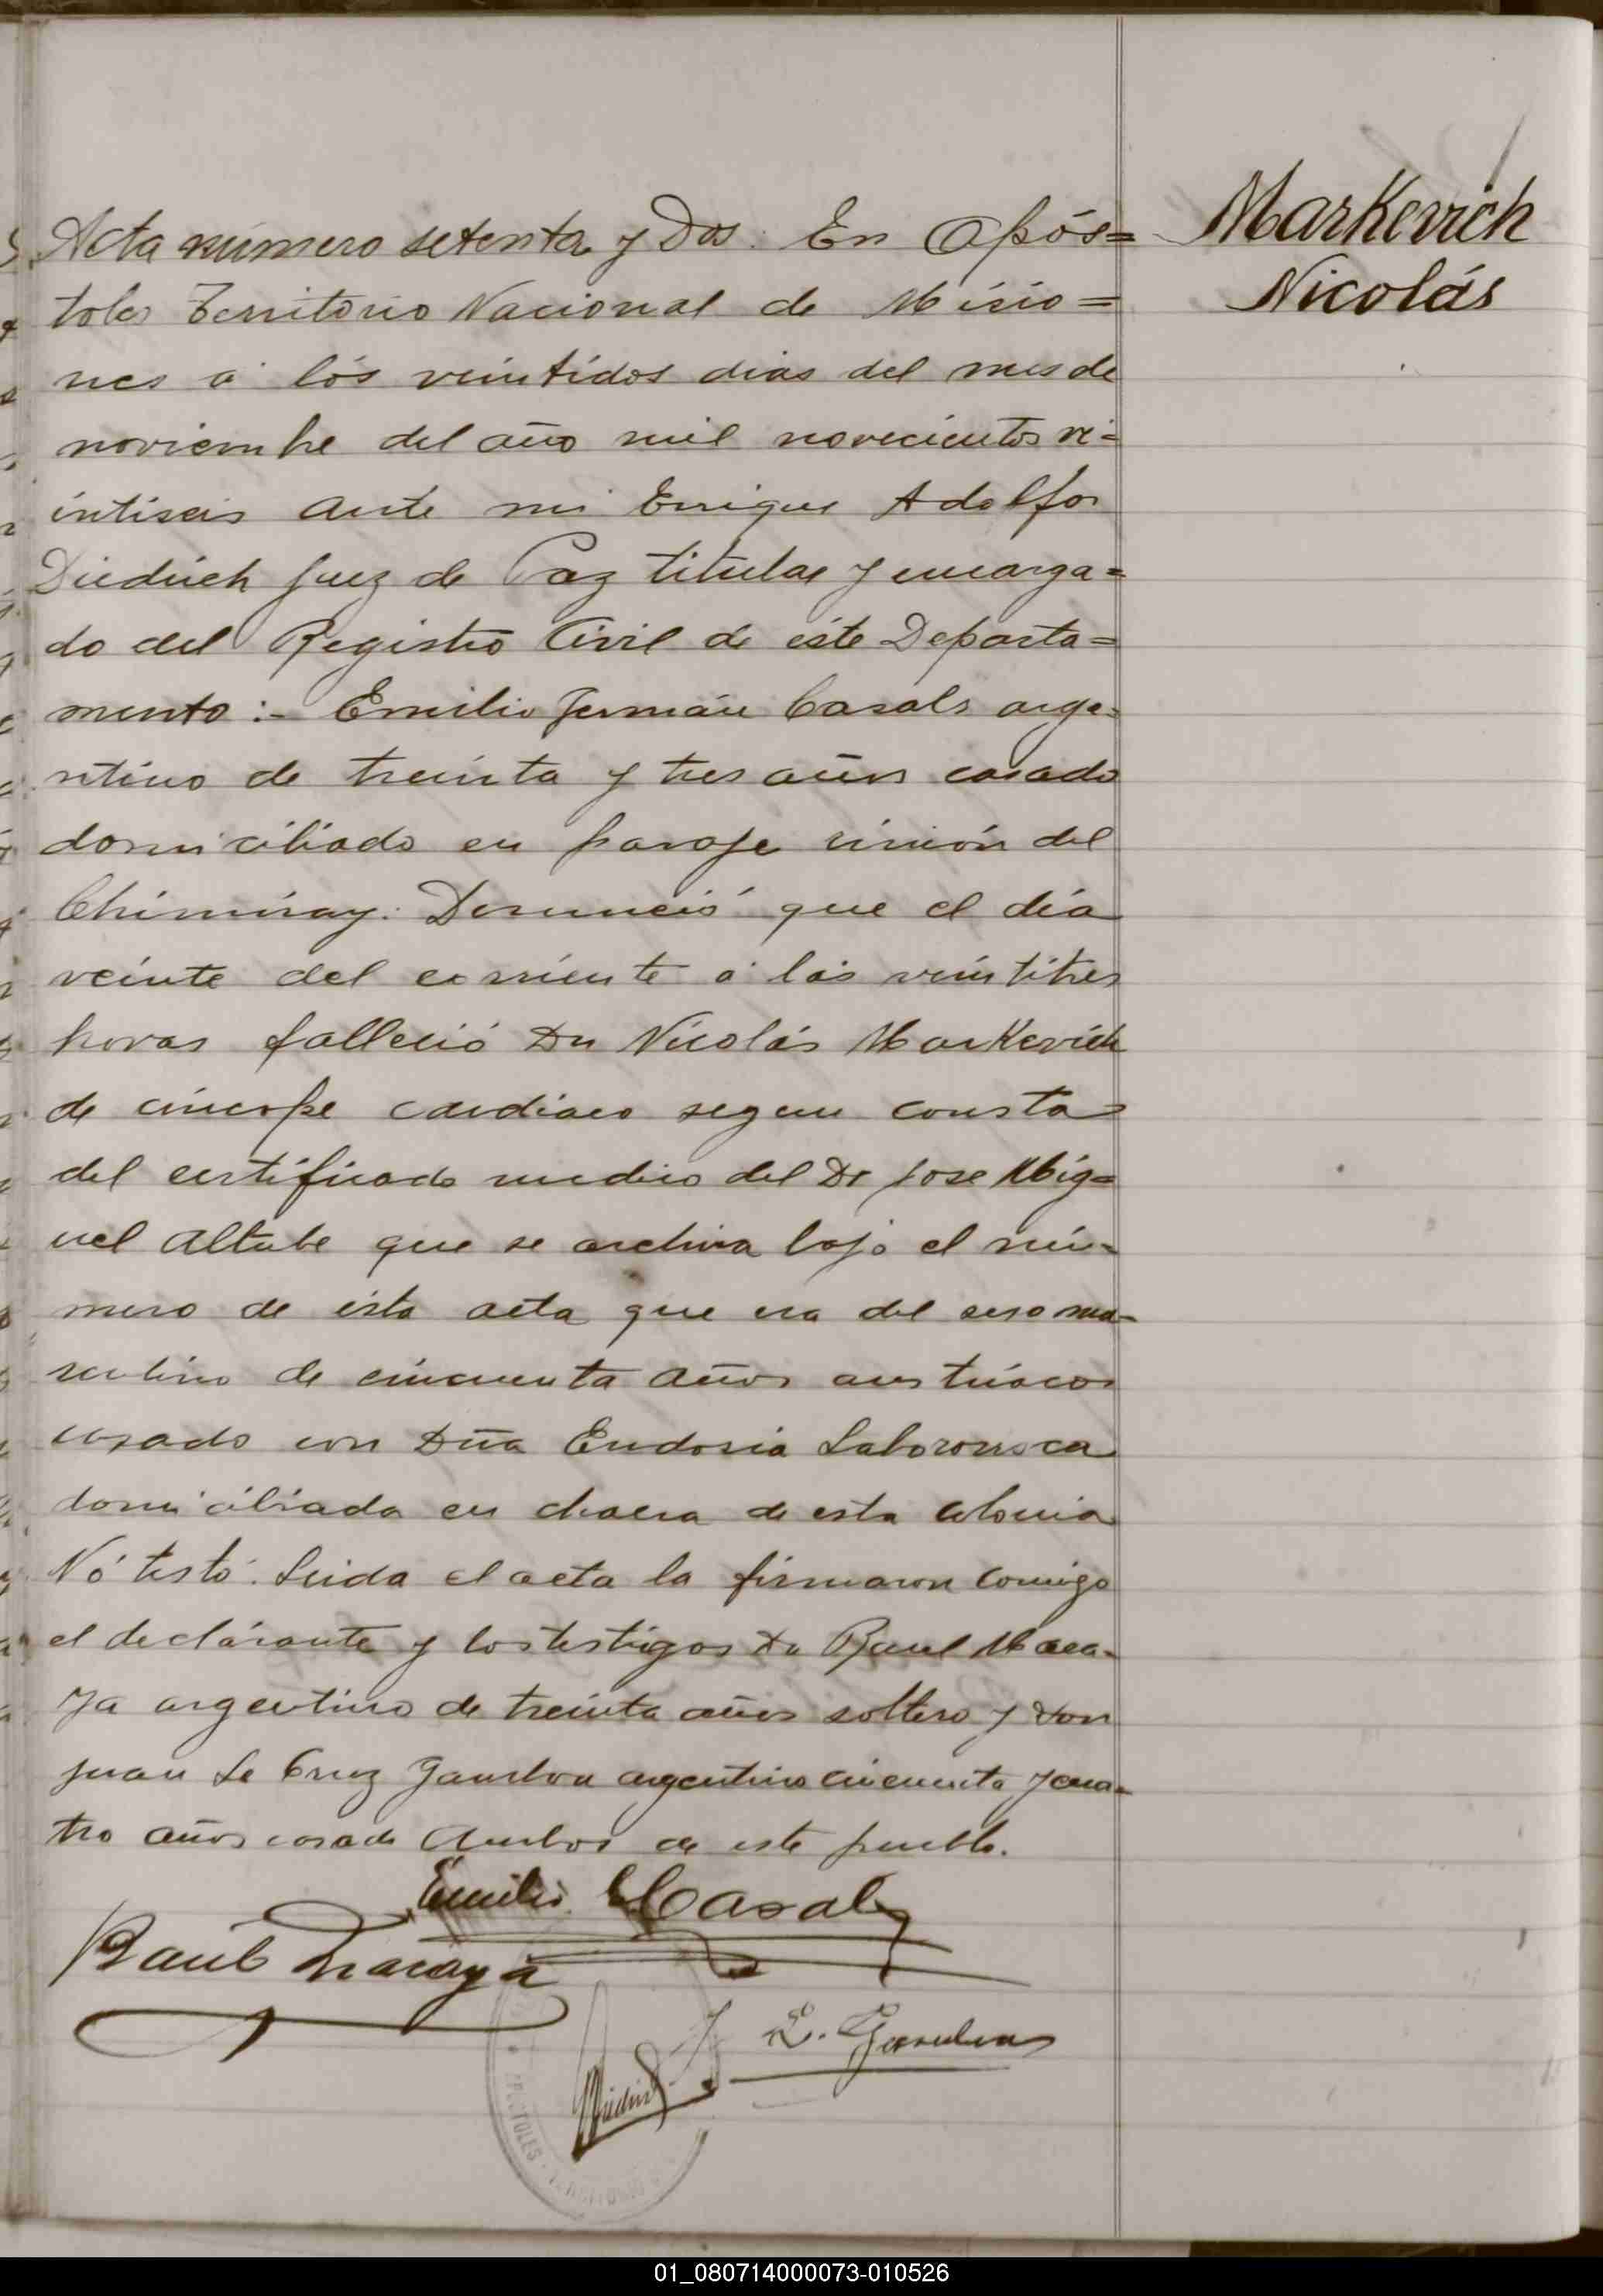 Markevich
Nicolás
Acta número setenta y Dos. En Após=
toles Territorio Nacional de Misio=
nes a los veintidos dias del mes de
noviembre del año mil novecientos ve-
intiseis ante mi Enrique Adolfo
Diedrich Juez de Paz titular y encarga=
do del Registro Civil de este Departa=
mento:- Emilio Germán Casals arge-
ntino de treinta y tres años casado
domiciliado en paraje rincón del
Chimiray. Denunció que el dia
veinte del corriente a las veintitres
horas falleció Dn Nicolás Markevich
de cincope cardiaco segun consta
del certificado medico del Dr Jose Mig=
uel Altube que se archiva bajo el nú-
mero de esta acta que era del sexo ma-
sculino de cincuenta años austriaco
casado con Dña Eudosia
domiciliada en chacra de esta colonia
Nó testó. Leida el acta la firmaron comigo
el declarante y los testigos Dn Raul Maca-
ya argentino de treinta años soltero y Don
Juan L. Cruz Gamboa argentino cincuenta y cua-
tro años casado Ambos de este pueblo.
Emilio G Casals
Raúl Macaya
J L. Gamboa
Diedrich
APOSTOLES · TERRITORIO
01_080714000073-010526